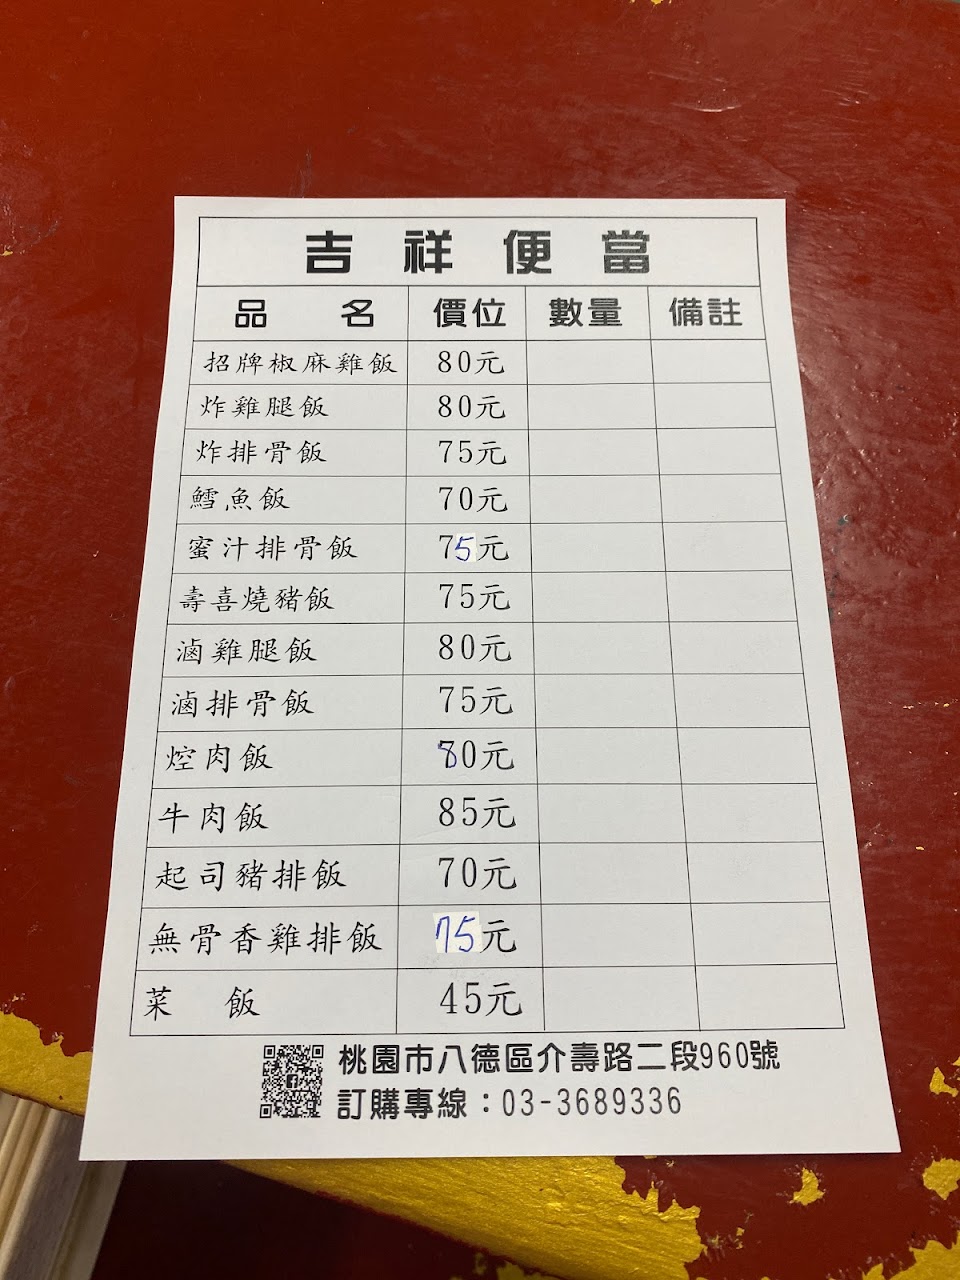 吉祥便當
品名 價位 數量 備註
招牌椒麻雞飯 80元
炸雞腿飯 80元
炸排骨飯 75元
鱈魚飯 70元
蜜汁排骨飯 75元
壽喜燒豬飯 75元
滷雞腿飯 80元
滷排骨飯 75元
焢肉飯 80元
牛肉飯 85元
起司豬排飯 70元
無骨香雞排飯 75元
菜飯 45元
桃園市八德區介壽路二段960號
訂購專線：03-3689336